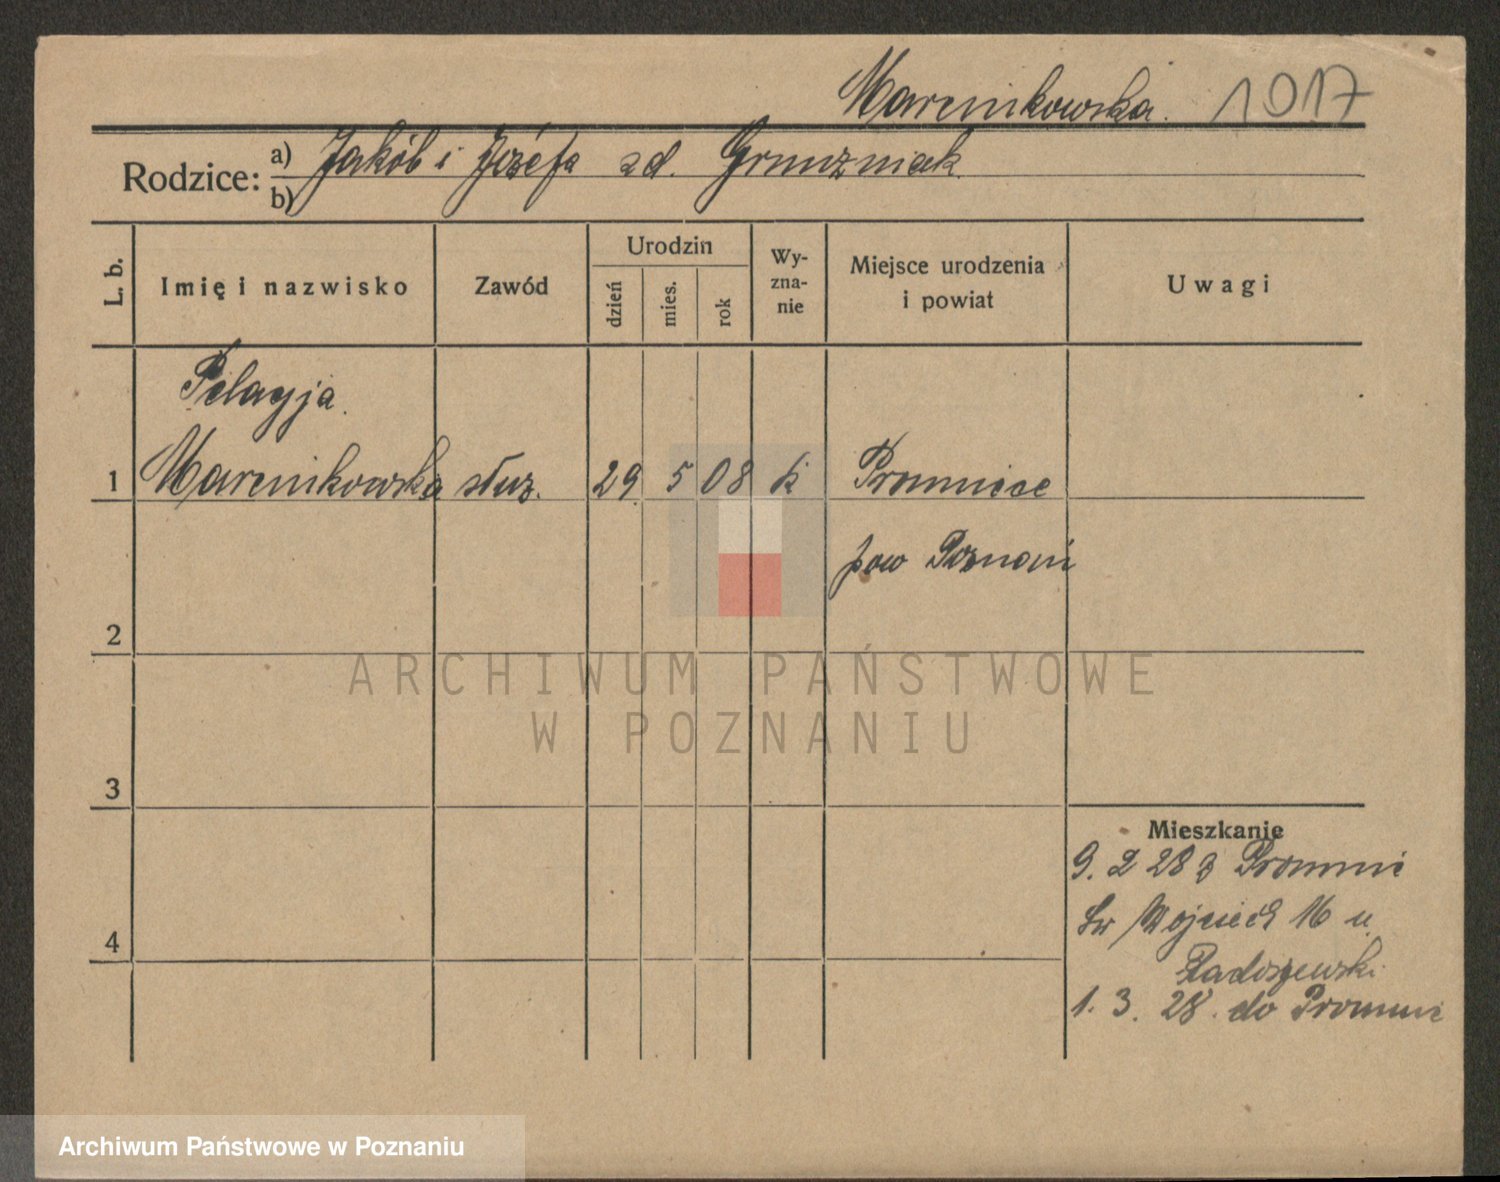 Marcinkowska. 1017
Rodzice: a) Jakób i Józefa zd. Gruszniak
b)
L. b. Imię i nazwisko Zawód Urodzin dzień mies. rok Wy-zna-nie Miejsce urodzenia i powiat Uwagi
Pelagja
1 Marcinkowska służ. 29 5 08 k Promnice
pow Poznań
2
ARCHIWUM PAŃSTWOWE
W POZNANIU
3
Mieszkanie
9. 2 28 z Promnic
Św Wojciech 16 u
4
Radoszewski
1. 3. 28. do Promnic
Archiwum Państwowe w Poznaniu